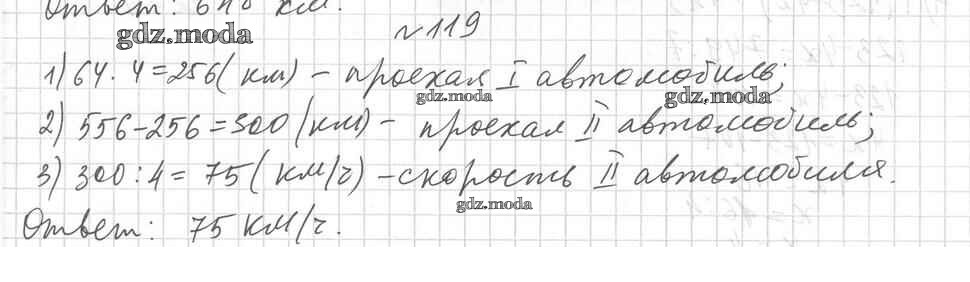 Ответ: 648 км.
№119
gdz.moda
1) 64 · 4 = 256 (км) – проехал I автомобиль;
gdz.moda
gdz.moda
2) 556 – 256 = 300 (км) – проехал II автомобиль;
3) 300 : 4 = 75 (км/ч) – скорость II автомобиля.
gdz.moda
Ответ: 75 км/ч.